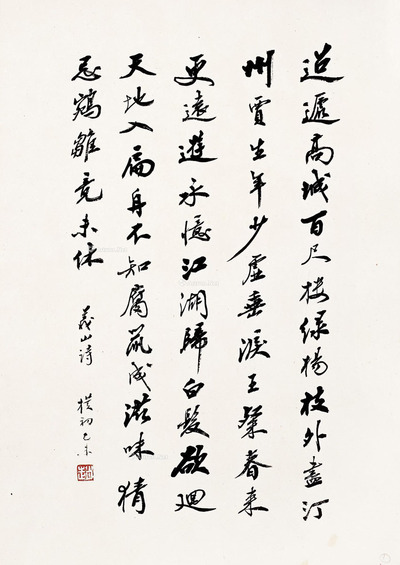 迢遞高城百尺楼绿楊枝外盡汀
州賈生年少虚垂淚王粲春来
更遠遊永憶江湖歸白髮欲廻
天地入扁舟不知腐鼠成滋味猜
忌鵷雛竟未休
義山诗 樸初己未